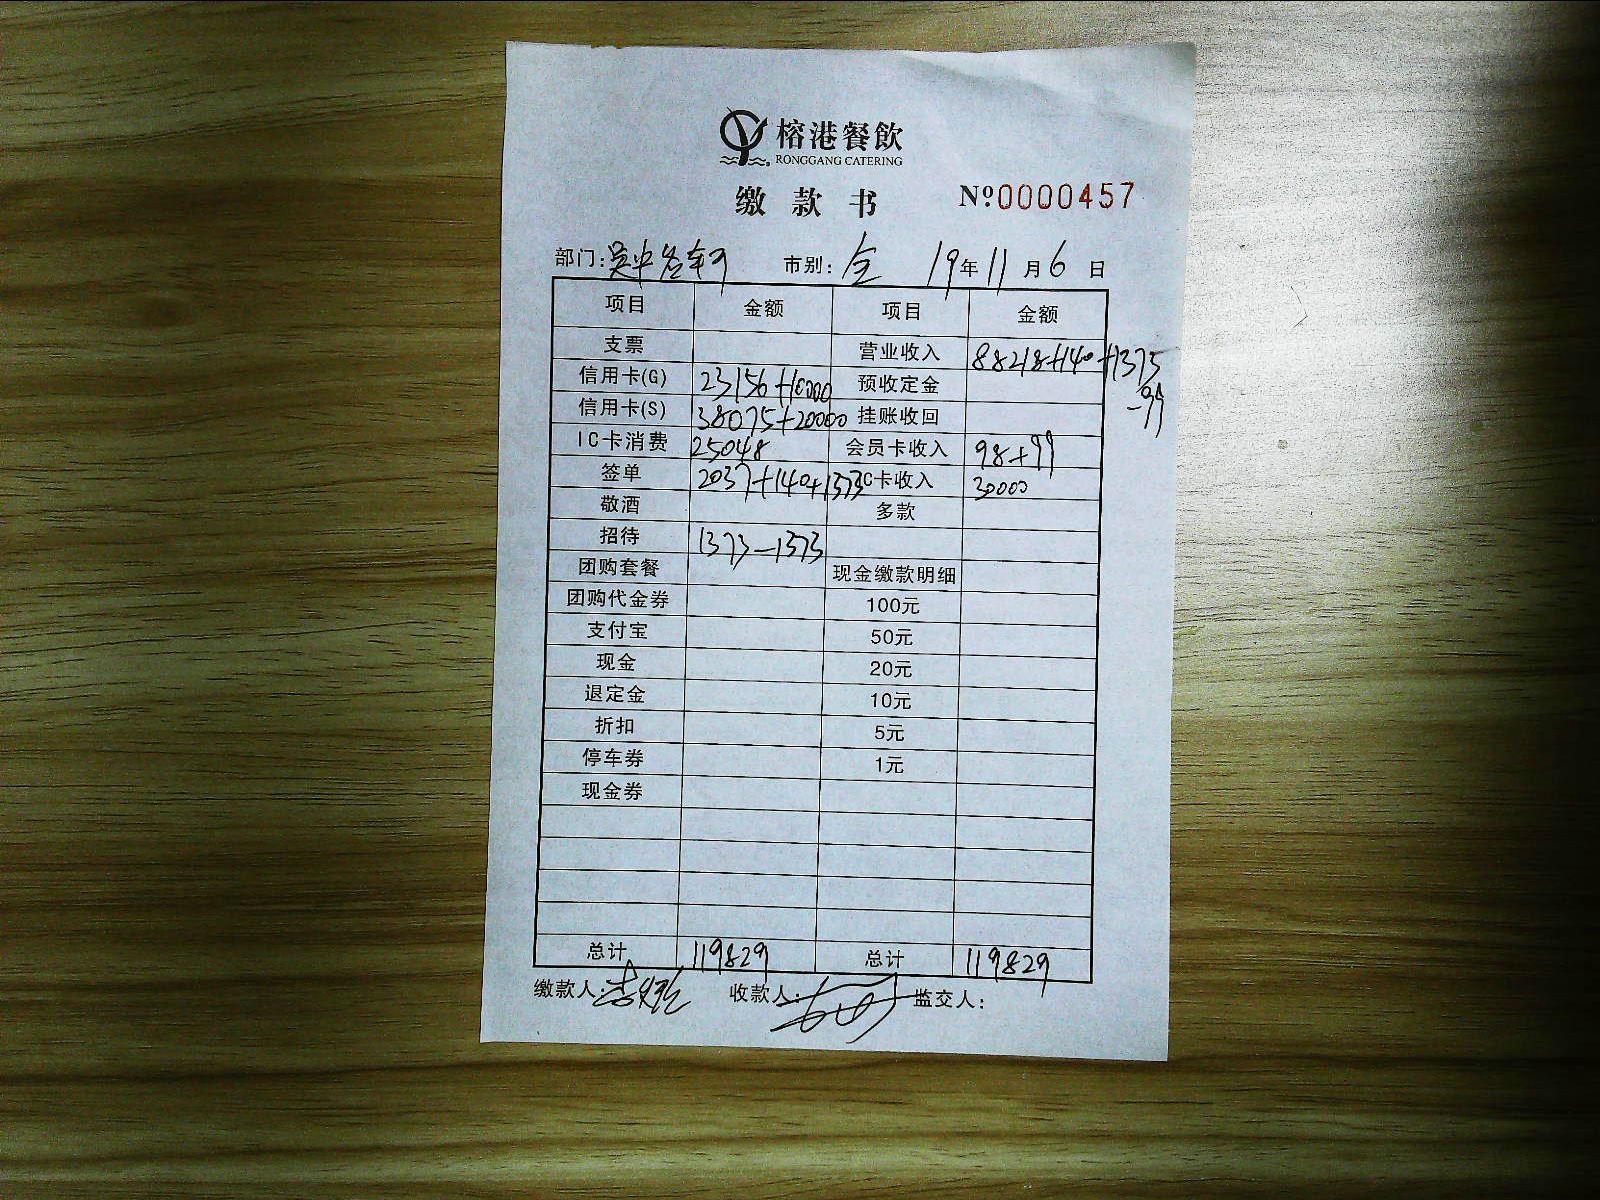 榕港餐飲
RONGGANG CATERING
缴款书 Nº0000457
部门: 市别:全 19年11月6日
项目 金额 项目 金额
支票 营业收入 88218+140+1375
-99
信用卡(G) 23156+10000 预收定金
信用卡(S) 38075+20000 挂账收回
IC卡消费 25048 会员卡收入 98+99
签单 2037+140+1373 C卡收入 30000
敬酒 多款
招待 1373-1373
团购套餐 现金缴款明细
团购代金券 100元
支付宝 50元
现金 20元
退定金 10元
折扣 5元
停车券 1元
现金券
总计 119829 总计 119829
缴款人: 收款人: 监交人: